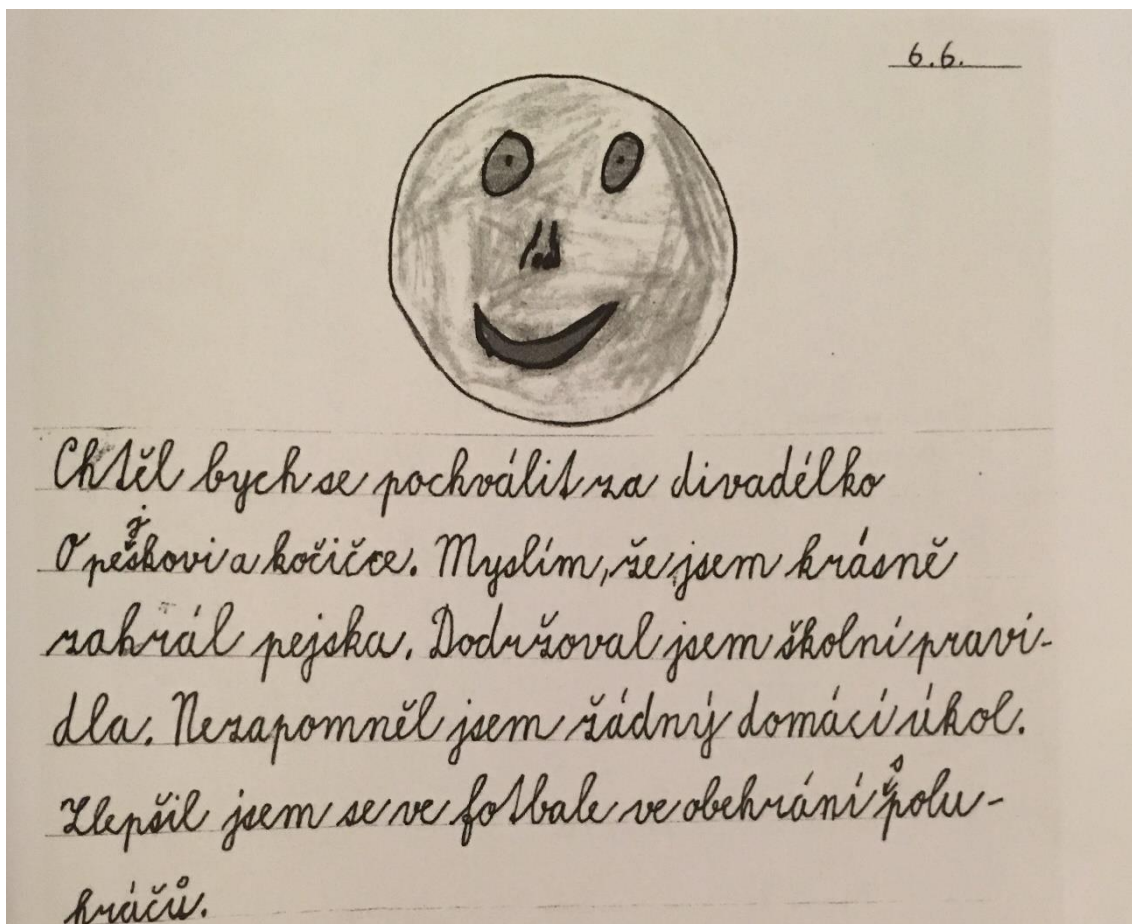 6.6.
Chtěl bych se pochválit za divadélko
O pejskovi a kočičce. Myslím, že jsem krásně
zahrál pejska. Dodržoval jsem školní pravi-
dla. Nezapomněl jsem žádný domácí úkol.
Zlepšil jsem se ve fotbale ve obehrání spolu-
hráčů.